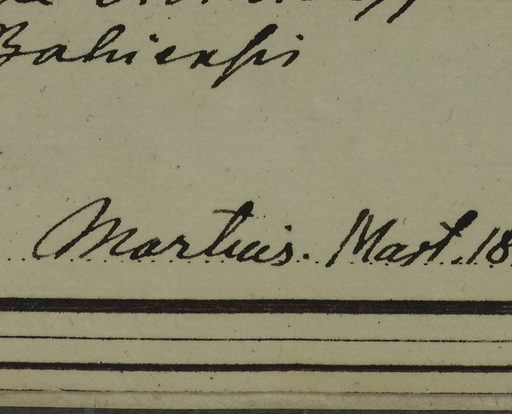 Bahiensis
Martius. Mart. 18